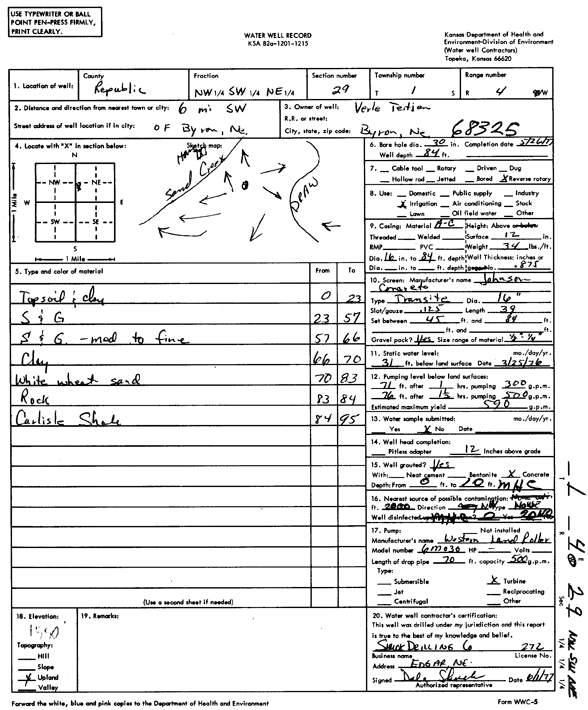 USE TYPEWRITER OR BALL
POINT PEN-PRESS FIRMLY,
PRINT CLEARLY.
WATER WELL RECORD
KSA 82a-1201-1215
Kansas Department of Health and
Environment-Division of Environment
(Water well Contractors)
Topeka, Kansas 66620
1. Location of well: County Republic Fraction NW 1/4 SW 1/4 NE 1/4 Section number 29 Township number T 1 S Range number R 4 W
2. Distance and direction from nearest town or city: 6 mi SW
Street address of well location if in city: OF Byron, Ne.
3. Owner of well: Verle Tietjen
R.R. or street:
City, state, zip code: Byron, Ne 68325
4. Locate with "X" in section below:
Sketch map:
N
NW NE
W E
SW SE
S
1 Mile
1 Mile
Sand Creek
DRAW
6. Bore hole dia. 30 in. Completion date 5/26/77
Well depth 84 ft.
7. Cable tool Rotary Driven Dug
Hollow rod Jetted Bored X Reverse rotary
8. Use: Domestic Public supply Industry
X Irrigation Air conditioning Stock
Lawn Oil field water Other
9. Casing: Material A-C Height: Above or below
Threaded Welded Surface 12 in.
RMP PVC Weight 34 lbs./ft.
Dia. 16 in. to 84 ft. depth Wall Thickness: inches or
Dia. in. to ft. depth gage No. .875
10. Screen: Manufacturer's name Johnson
Concrete
Type Transite Dia. 16"
Slot/gauze .125 Length 39
Set between 45 ft. and 84 ft.
ft. and ft.
Gravel pack? Yes Size range of material 1/8"-1/4"
11. Static water level: mo./day/yr.
31 ft. below land surface Date 3/25/76
12. Pumping level below land surfaces:
71 ft. after 1 hrs. pumping 300 g.p.m.
76 ft. after 1½ hrs. pumping 500 g.p.m.
Estimated maximum yield 590 g.p.m.
13. Water sample submitted: mo./day/yr.
Yes X No Date
14. Well head completion:
Pitless adapter 12 Inches above grade
15. Well grouted? Yes
With: Neat cement Bentonite X Concrete
Depth: From 0 ft. to 20 ft. MHC
16. Nearest source of possible contamination:
ft. Direction Type
Well disinfected
17. Pump: Not installed
Manufacturer's name Western Land Roller
Model number 6M030 HP - Volts
Length of drop pipe 70 ft. capacity 500 g.p.m.
Type:
Submersible X Turbine
Jet Reciprocating
Centrifugal Other
5. Type and color of material From To
Topsoil & clay 0 23
S & G 23 57
S & G - med to fine 57 66
Clay 66 70
White wheat sand 70 83
Rock 83 84
Carlisle Shale 84 95
(Use a second sheet if needed)
18. Elevation:
Topography:
Hill
Slope
X Upland
Valley
19. Remarks:
20. Water well contractor's certification:
This well was drilled under my jurisdiction and this report
is true to the best of my knowledge and belief.
SHUCK DRILLING Co 272
Business name License No.
Address EDGAR, NE.
Signed Dale Shuck Date
Authorized representative
Forward the white, blue and pink copies to the Department of Health and Environment
Form WWC-5
T 1 R 4 W Sec 29 NW SW NE
1/4 1/4 1/4